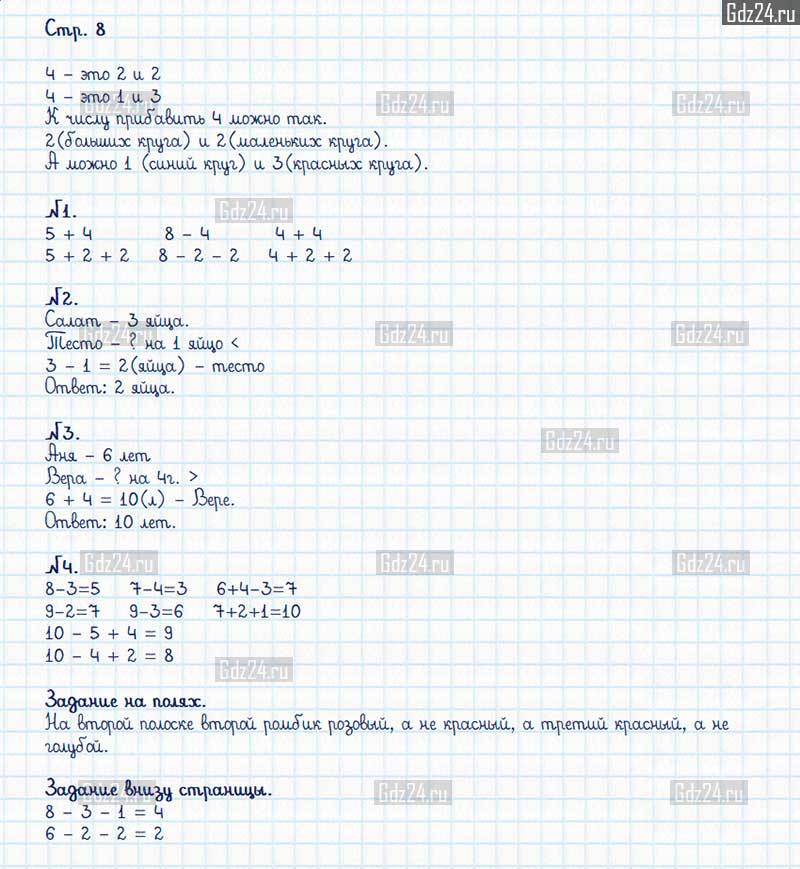 Gdz24.ru
Стр. 8
4 – это 2 и 2
4 – это 1 и 3
Gdz24.ru Gdz24.ru Gdz24.ru
К числу прибавить 4 можно так.
2(больших круга) и 2(маленьких круга).
А можно 1 (синий круг) и 3(красных круга).
№1.
Gdz24.ru
5 + 4 8 – 4 4 + 4
5 + 2 + 2 8 – 2 – 2 4 + 2 + 2
№2.
Салат – 3 яйца.
Gdz24.ru Gdz24.ru Gdz24.ru
Тесто – ? на 1 яйцо <
3 – 1 = 2(яйца) – тесто
Ответ: 2 яйца.
№3.
Gdz24.ru
Аня – 6 лет
Вера – ? на 4г. >
6 + 4 = 10(л) – Вере.
Ответ: 10 лет.
№4.
Gdz24.ru Gdz24.ru Gdz24.ru
8–3=5 7–4=3 6+4–3=7
9–2=7 9–3=6 7+2+1=10
10 – 5 + 4 = 9
10 – 4 + 2 = 8
Gdz24.ru
Задание на полях.
На второй полоске второй ромбик розовый, а не красный, а третий красный, а не
голубой.
Задание внизу страницы.
Gdz24.ru Gdz24.ru Gdz24.ru
8 – 3 – 1 = 4
6 – 2 – 2 = 2